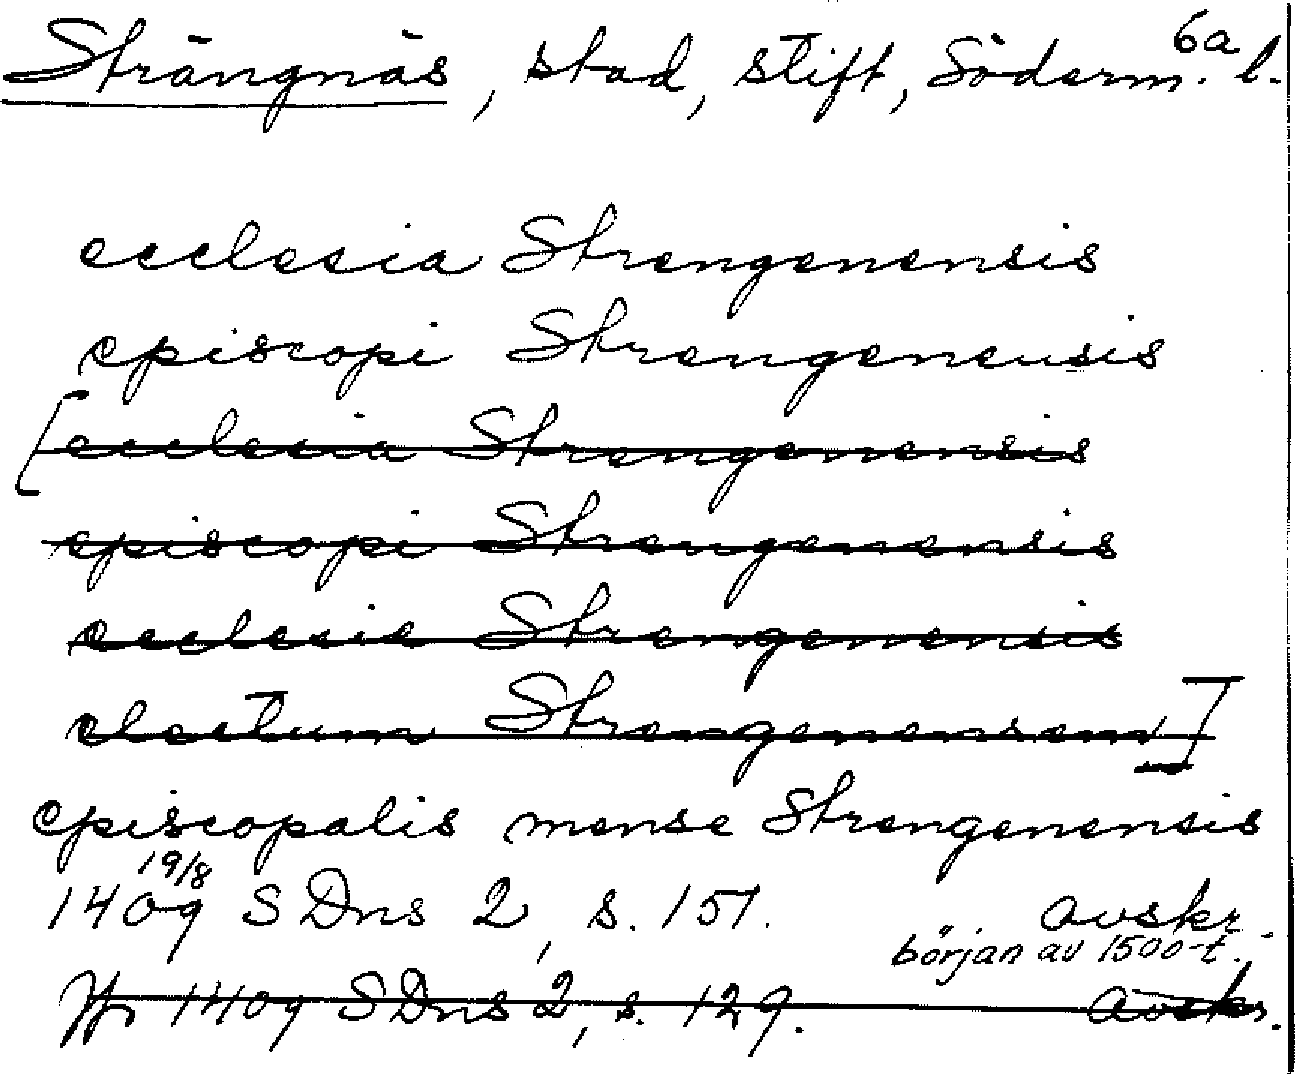 6a
Strängnäs, stad, stift, Söderm. l.
ecclesia Strengenensis
episcopi Strengenensis
[ecclesia Strengenensis
episcopi Strengenensis
ecclesie Strengenensis
electum Strengenensem]
episcopalis mense Strengenensis
19/8
1409 SDns 2, s. 151. avskr.
början av 1500-t.
Jfr 1409 SDns 2, s. 129. avskr.